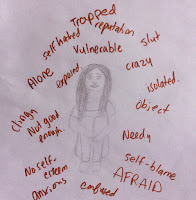 Trapped
reputation
self hatred
Vulnerable
slut
Alone
exposed
crazy
isolated.
object
clingy
Not good
enough
Needy
No self.
esteem
self-blame
anxious
confused
AFRAID